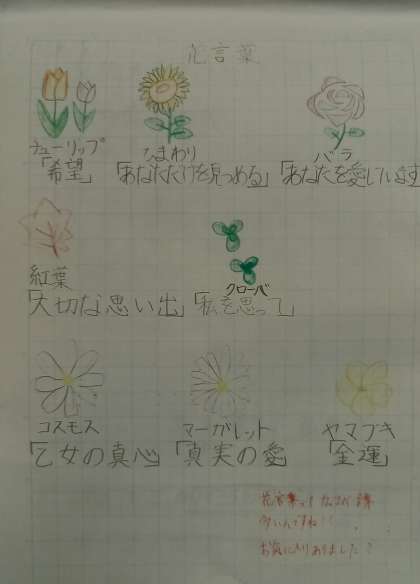 花言葉
チューリップ
「希望」
ひまわり
「あなただけを見つめる」
バラ
「あなたを愛しています
紅葉
「大切な思い出」
クローバー
「私を思って」
コスモス
「乙女の真心」
マーガレット
「真実の愛」
ヤマブキ
「金運」
花言葉って
多いんですね!!
お気に入りありました?